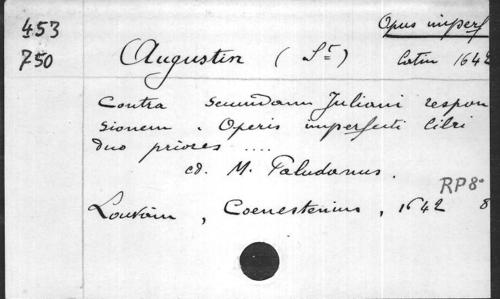 453
750
Opus imperf
Augustin (St)
latin 1642
Contra secundam Juliani respon
sionem. Operis imperfecti libri
duo priores ....
ed. M. Paludanus.
RP8°
Louvain, Coenestenius, 1642 8